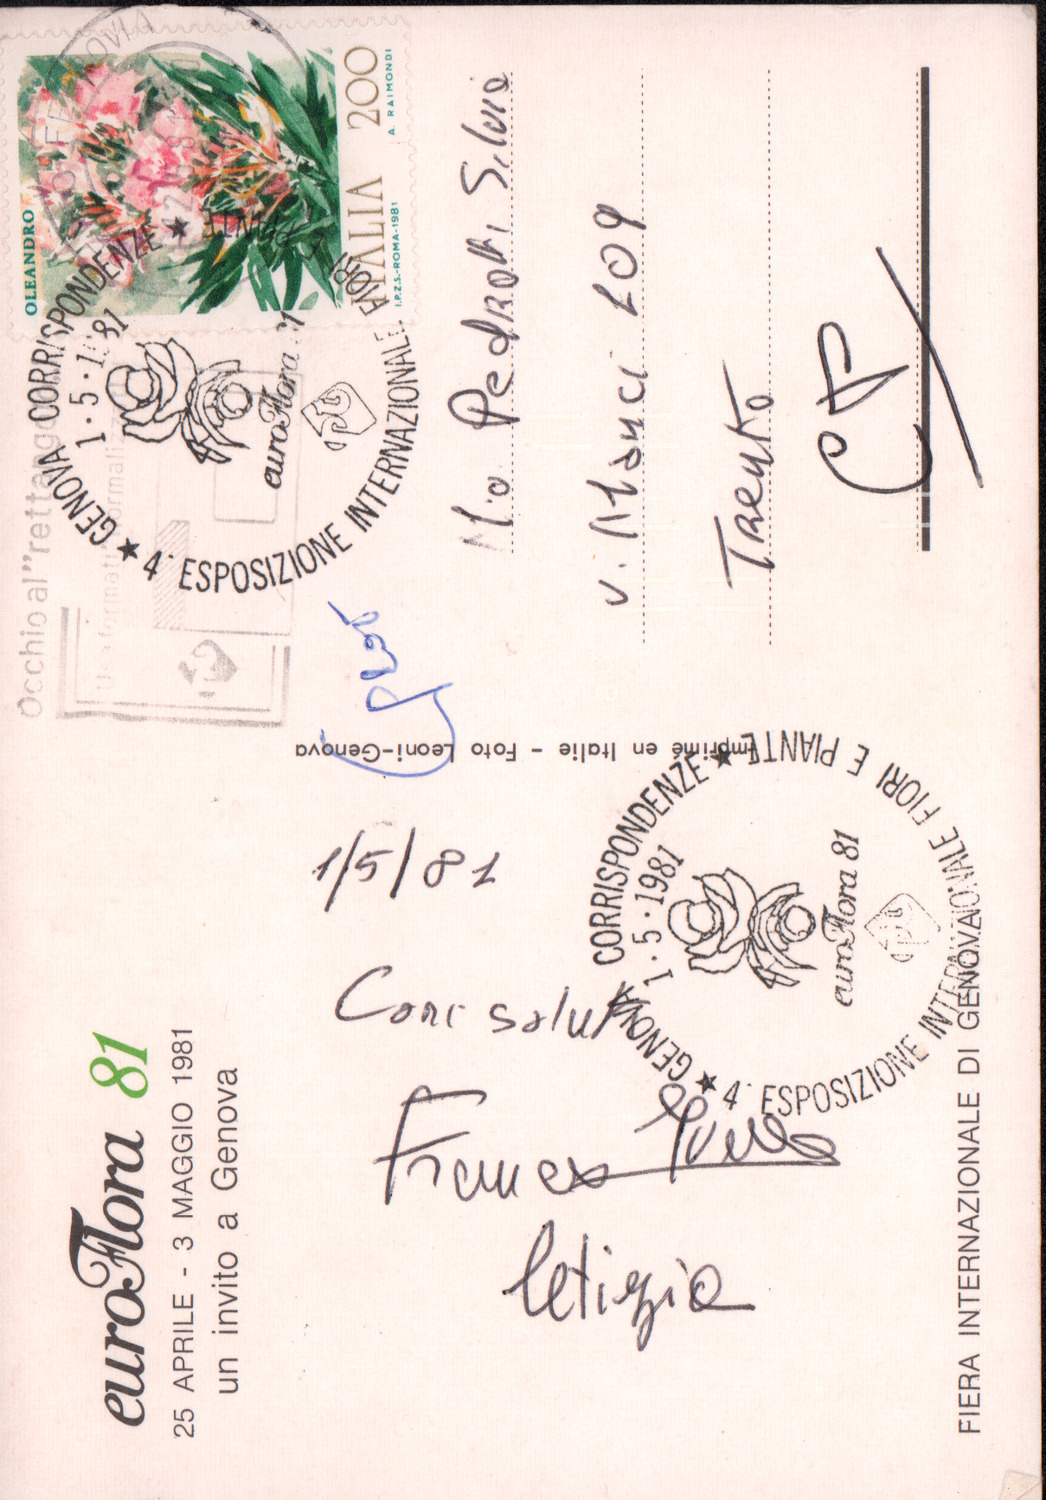 euroFlora 81
25 APRILE - 3 MAGGIO 1981
un invito a Genova
1/5/81
Cari saluti
Letizia
FIERA INTERNAZIONALE DI GENOVA
Imprimé en Italie - Foto Leoni-Genova
OLEANDRO
ITALIA 200
I.P.Z.S.-ROMA-1981
A. RAIMONDI
GENOVA CORRISPONDENZE ★ 4ª ESPOSIZIONE INTERNAZIONALE FIORI E PIANTE ★
1·5·1981
euroFlora 81
Occhio al "rettangolo
Usa formati normalizzati
Pedrotti Silvio
Trento
GENOVA CORRISPONDENZE ★ 4ª ESPOSIZIONE INTERNAZIONALE FIORI E PIANTE ★
1·5·1981
euroFlora 81